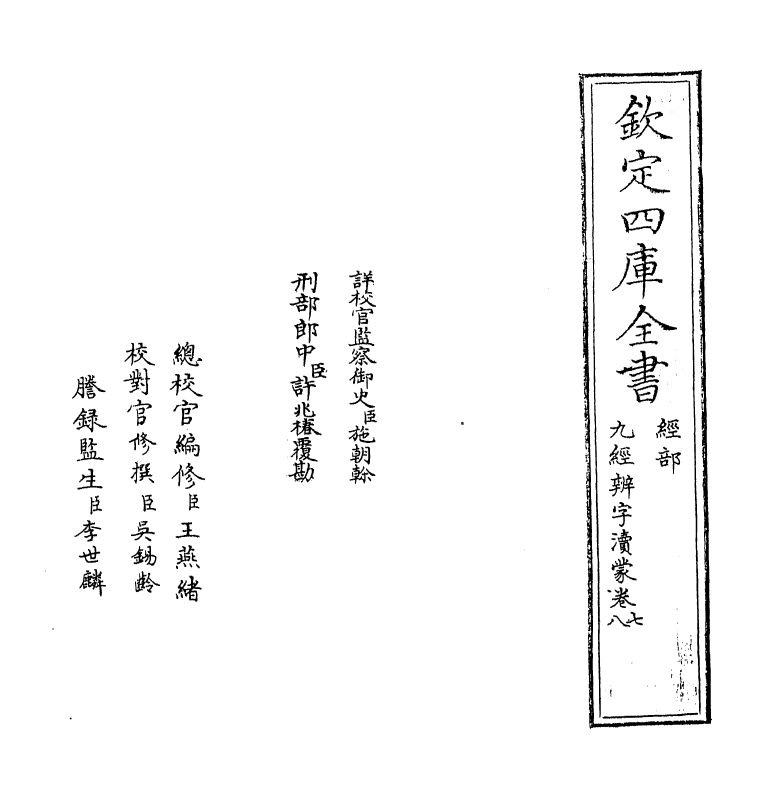 欽定四庫全書
經部
九經辨字瀆蒙卷七八
詳校官監察御史臣施朝榦
刑部郎中臣許兆椿覆勘
總校官編修臣王燕緒
校對官修撰臣吳錫齡
謄錄監生臣李世麟